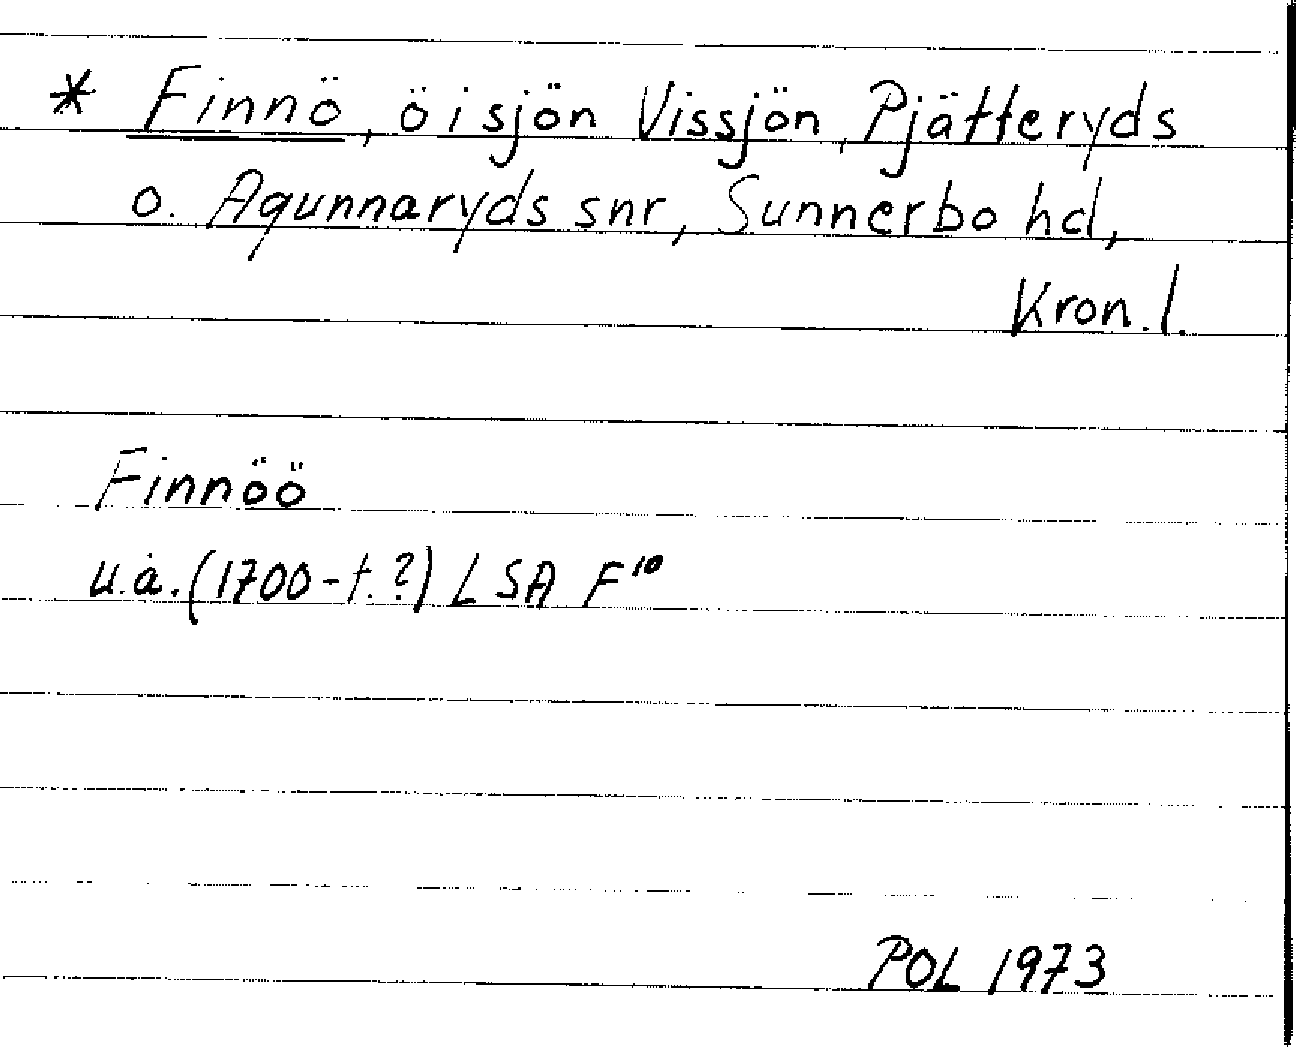 * Finnö, ö i sjön Vissjön, Pjätteryds
o. Agunnaryds snr, Sunnerbo hd,
Kron. l.
Finnöö
u.å. (1700-t.?) LSA F¹⁰
POL 1973